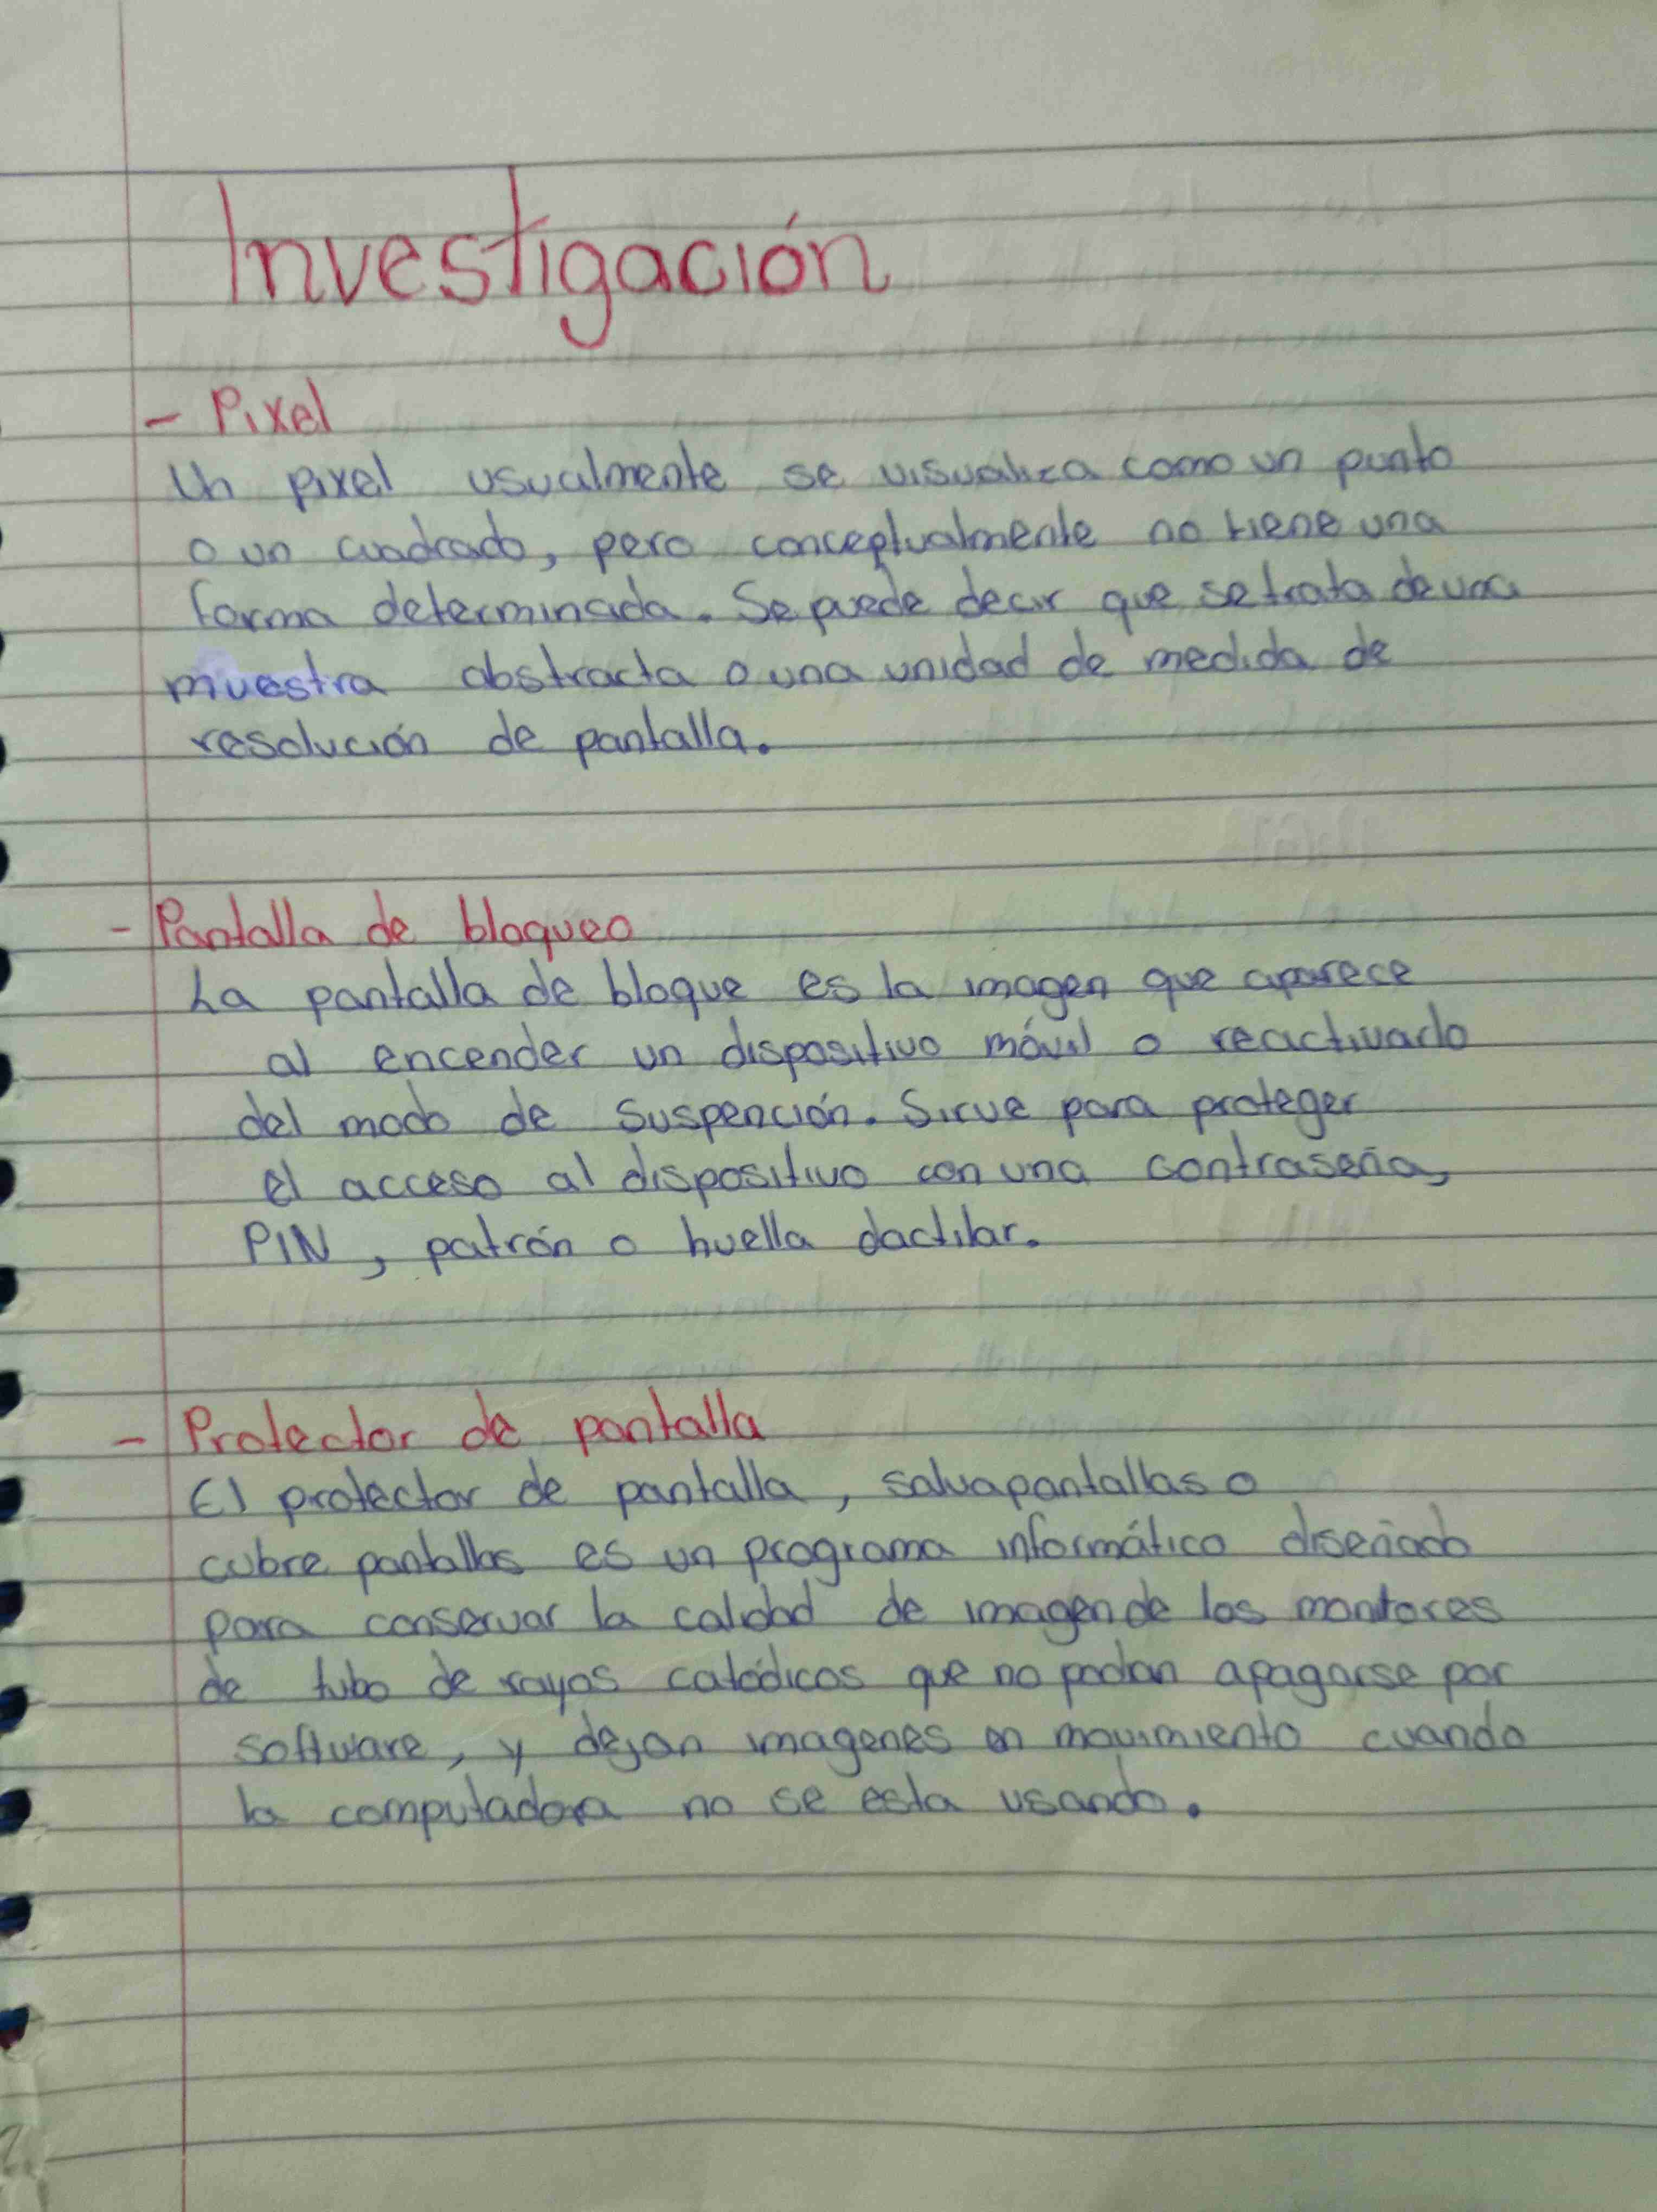 Investigación
- Pixel
Un pixel usualmente se visualiza como un punto
o un cuadrado, pero conceptualmente no tiene una
forma determinada. Se puede decir que se trata de una
muestra abstracta o una unidad de medida de
resolución de pantalla.
- Pantalla de bloqueo
La pantalla de bloque es la imagen que aparece
al encender un dispositivo móvil o reactivarlo
del modo de suspención. Sirve para proteger
el acceso al dispositivo con una contraseña,
PIN, patrón o huella dactilar.
- Protector de pantalla
El protector de pantalla, salvapantallas o
cubre pantallas es un programa informático diseñado
para conservar la calidad de imagen de los monitores
de tubo de rayos catódicos que no podian apagarse por
software, y dejan imagenes en movimiento cuando
la computadora no se esta usando.